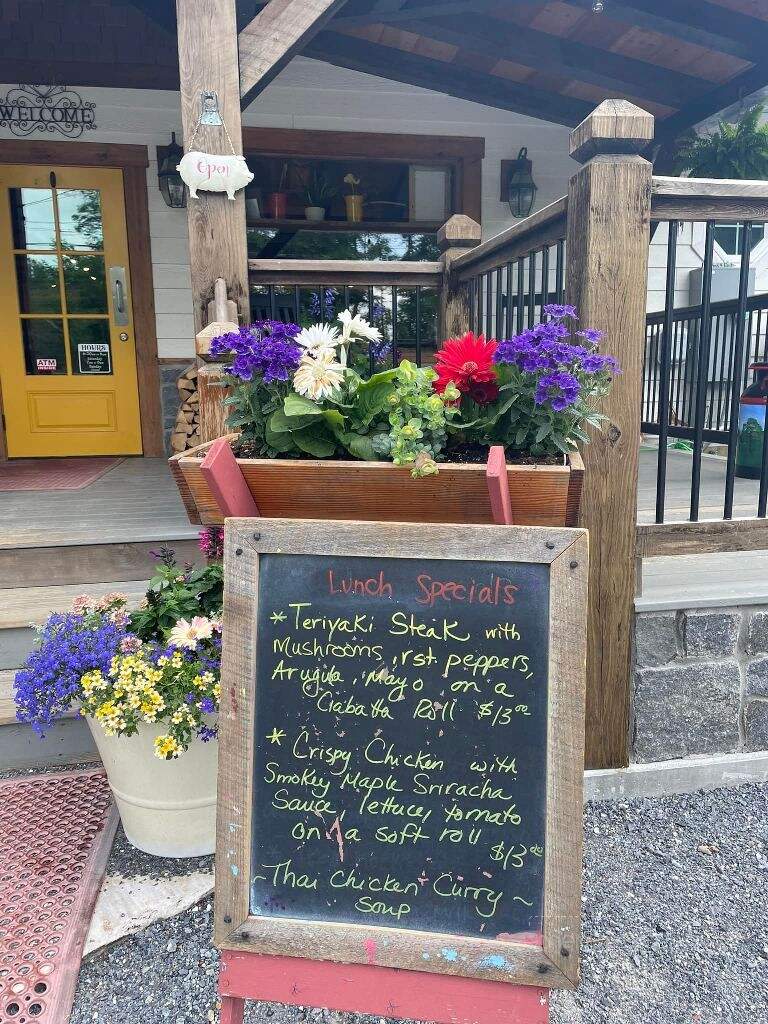 WELCOME
Open
ATM
INSIDE
HOURS
Lunch Specials
* Teriyaki Steak with
Mushrooms, rst. peppers,
Arugula, Mayo on a
Ciabatta Roll $13.00
* Crispy Chicken with
Smokey Maple Sriracha
Sauce, lettuce, tomato
on a soft roll
$13.00
~Thai Chicken Curry~
Soup